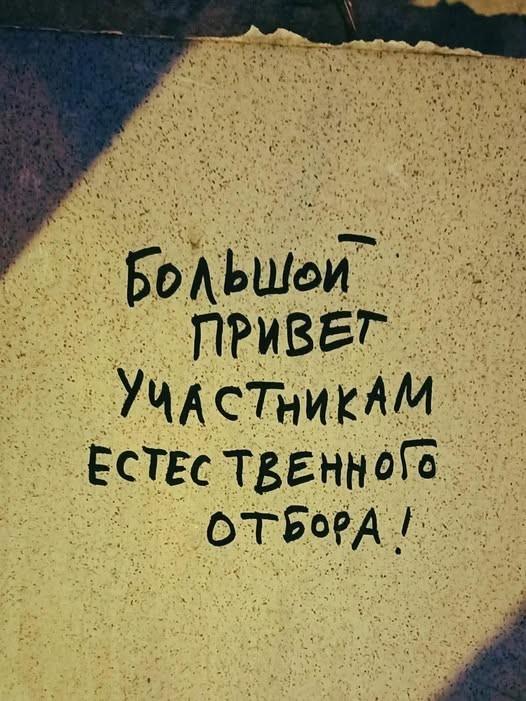 БОЛЬШОЙ
ПРИВЕТ
УЧАСТНИКАМ
ЕСТЕСТВЕННОГО
ОТБОРА!